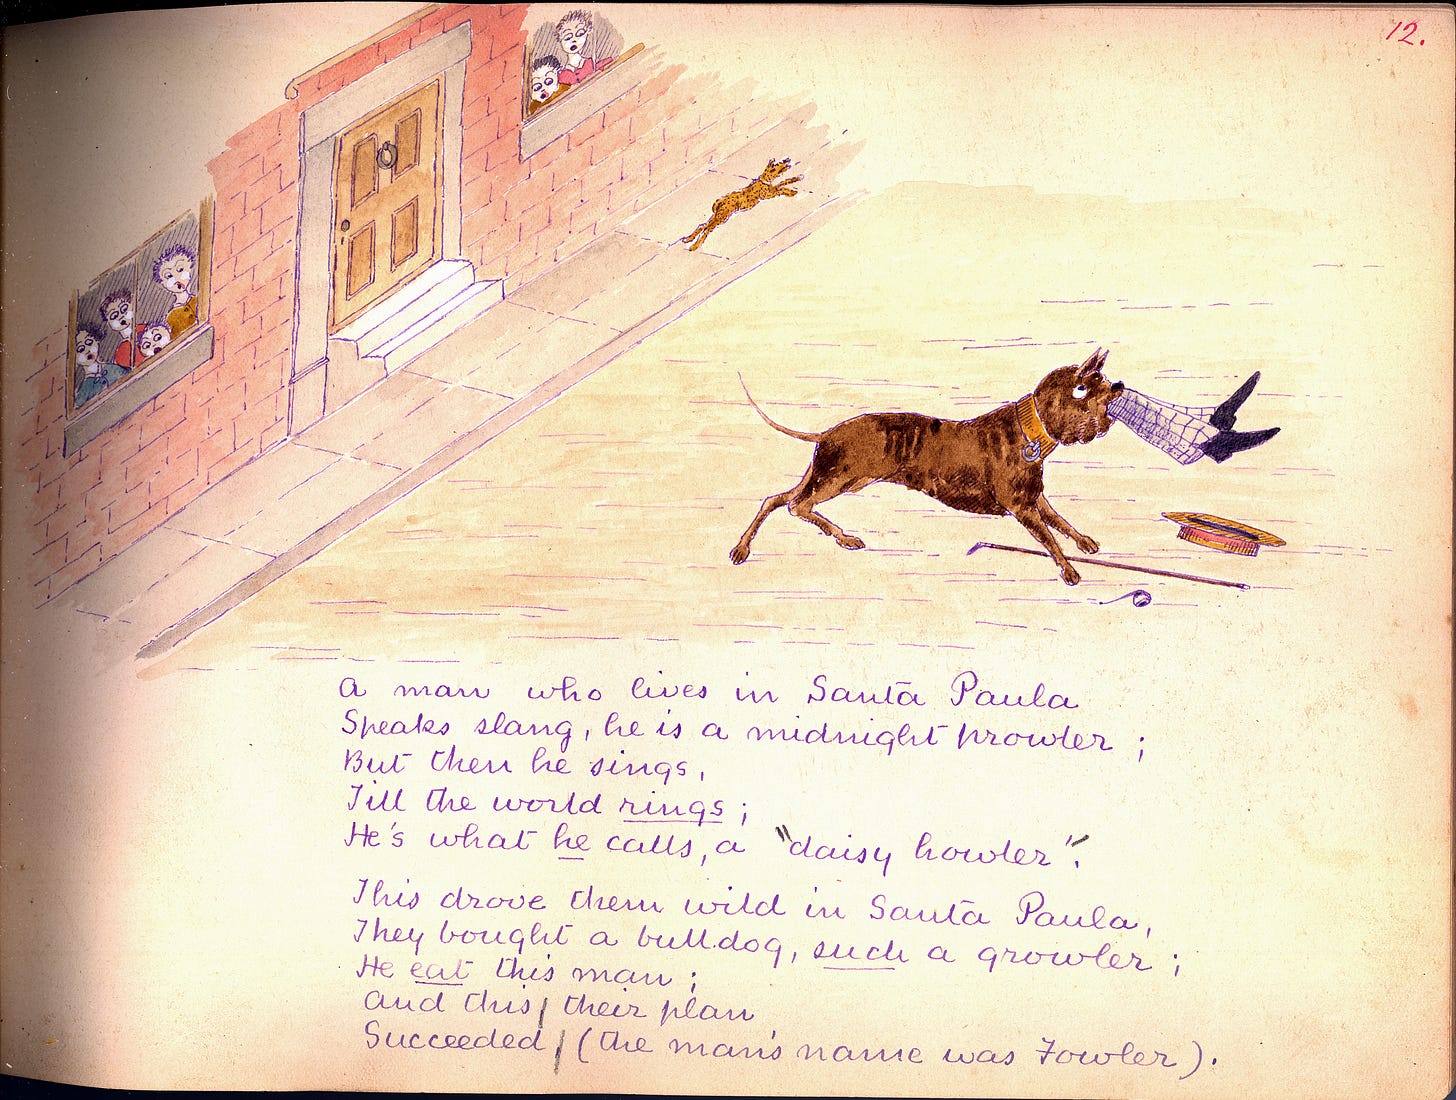 12.
A man who lives in Santa Paula
Speaks slang, he is a midnight prowler;
But then he sings,
Till the world rings;
He's what he calls, a "daisy howler".
This drove them wild in Santa Paula,
They bought a bulldog, such a growler;
He eat this man;
And this, their plan
Succeeded, (the man's name was Fowler).